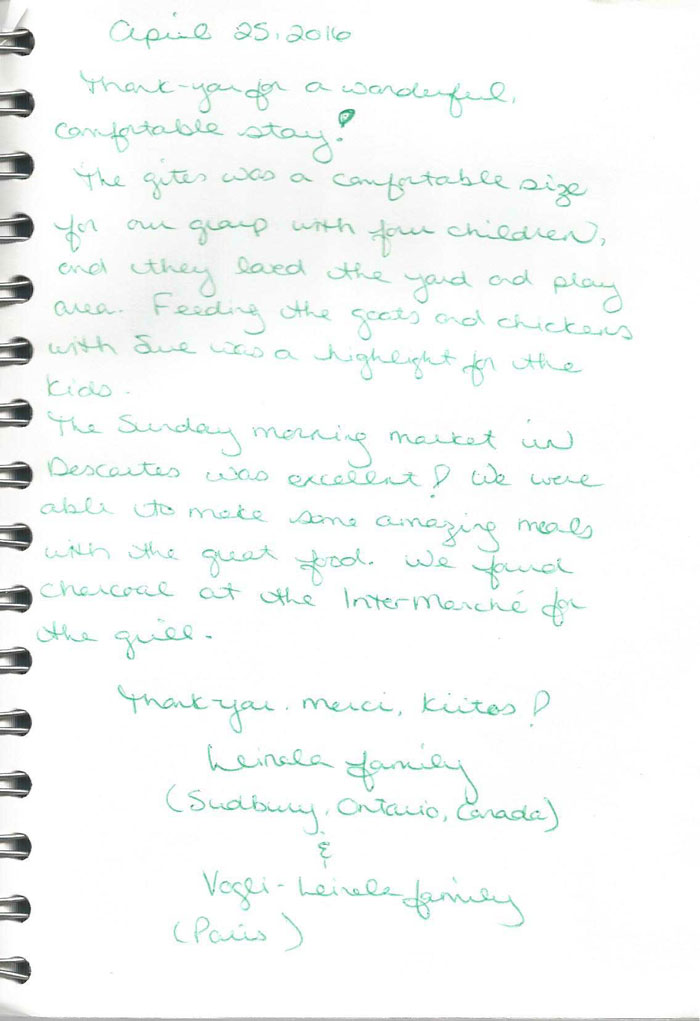 April 25, 2016
Thank-you for a wonderful,
comfortable stay!
The gites was a comfortable size
for our group with four children,
and they loved the yard and play
area. Feeding the goats and chickens
with Sue was a highlight for the
kids.
The Sunday morning market in
Descartes was excellent! We were
able to make some amazing meals
with the great food. We found
charcoal at the InterMarché for
the grill.
Thank-you. Merci, Kiitos!
Leinala family
(Sudbury, Ontario, Canada)
&
Vogli-Leinala family
(Paris)